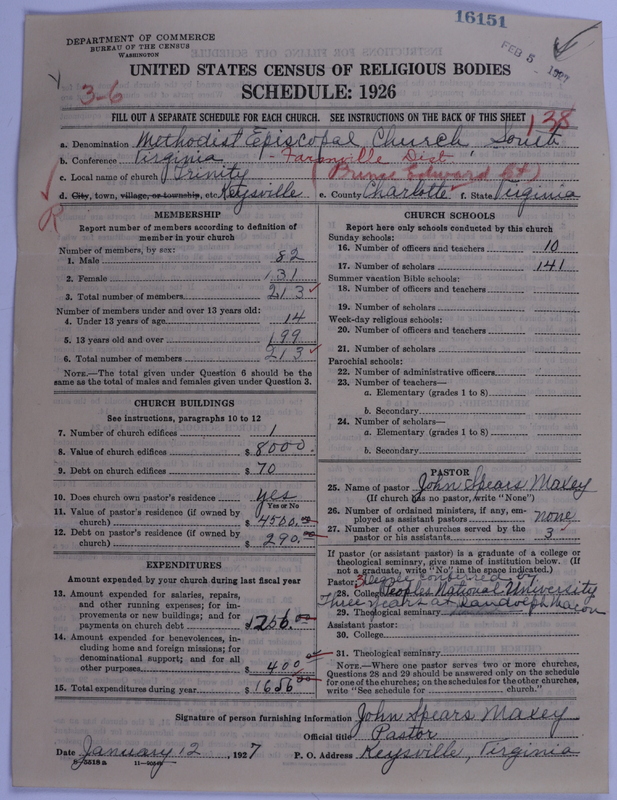 16151
DEPARTMENT OF COMMERCE
BUREAU OF THE CENSUS
WASHINGTON
FEB 5 1927
UNITED STATES CENSUS OF RELIGIOUS BODIES
SCHEDULE: 1926
3-6
FILL OUT A SEPARATE SCHEDULE FOR EACH CHURCH. SEE INSTRUCTIONS ON THE BACK OF THIS SHEET
138
a. Denomination Methodist Episcopal Church South
b. Conference Virginia - Farmville Dist.
c. Local name of church Trinity (Prince Edward Ct)
d. City, town, village, or township, etc. Keysville e. County Charlotte f. State Virginia
R
MEMBERSHIP
Report number of members according to definition of member in your church
Number of members, by sex:
1. Male 82
2. Female 131
3. Total number of members 213
Number of members under and over 13 years old:
4. Under 13 years of age 14
5. 13 years old and over 199
6. Total number of members 213
NOTE.—The total given under Question 6 should be the
same as the total of males and females given under Question 3.
CHURCH BUILDINGS
See instructions, paragraphs 10 to 12
7. Number of church edifices 1
8. Value of church edifices $ 8000.
9. Debt on church edifices $ 70
10. Does church own pastor's residence yes
Yes or No
11. Value of pastor's residence (if owned by
church) $ 4500.00
12. Debt on pastor's residence (if owned by
church) $ 290.00
EXPENDITURES
Amount expended by your church during last fiscal year
13. Amount expended for salaries, repairs,
and other running expenses; for im-
provements or new buildings; and for
payments on church debt $1256.00
14. Amount expended for benevolences, in-
cluding home and foreign missions; for
denominational support; and for all
other purposes $ 400.00
15. Total expenditures during year $ 1656.00
CHURCH SCHOOLS
Report here only schools conducted by this church
Sunday schools:
16. Number of officers and teachers 10
17. Number of scholars 141
Summer vacation Bible schools:
18. Number of officers and teachers
19. Number of scholars
Week-day religious schools:
20. Number of officers and teachers
21. Number of scholars
Parochial schools:
22. Number of administrative officers
23. Number of teachers—
a. Elementary (grades 1 to 8)
b. Secondary
24. Number of scholars—
a. Elementary (grades 1 to 8)
b. Secondary
PASTOR
25. Name of pastor John Spears Maxey
(If church has no pastor, write "None")
26. Number of ordained ministers, if any, em-
ployed as assistant pastors none
27. Number of other churches served by the
pastor or his assistants 3
If pastor (or assistant pastor) is a graduate of a college or
theological seminary, give name of institution below. (If
not a graduate, write "No" in the space indicated.)
Pastor: degree conferred by
28. College Peoples National University
Three years at Randolph Macon
29. Theological seminary
Assistant pastor:
30. College
31. Theological seminary
NOTE.—Where one pastor serves two or more churches,
Questions 28 and 29 should be answered only on the schedule
for one of the churches; on the schedules for the other churches,
write "See schedule for church."
Signature of person furnishing information John Spears Maxey
Official title Pastor
Date January 12, 1927 P. O. Address Keysville, Virginia
8-5518a